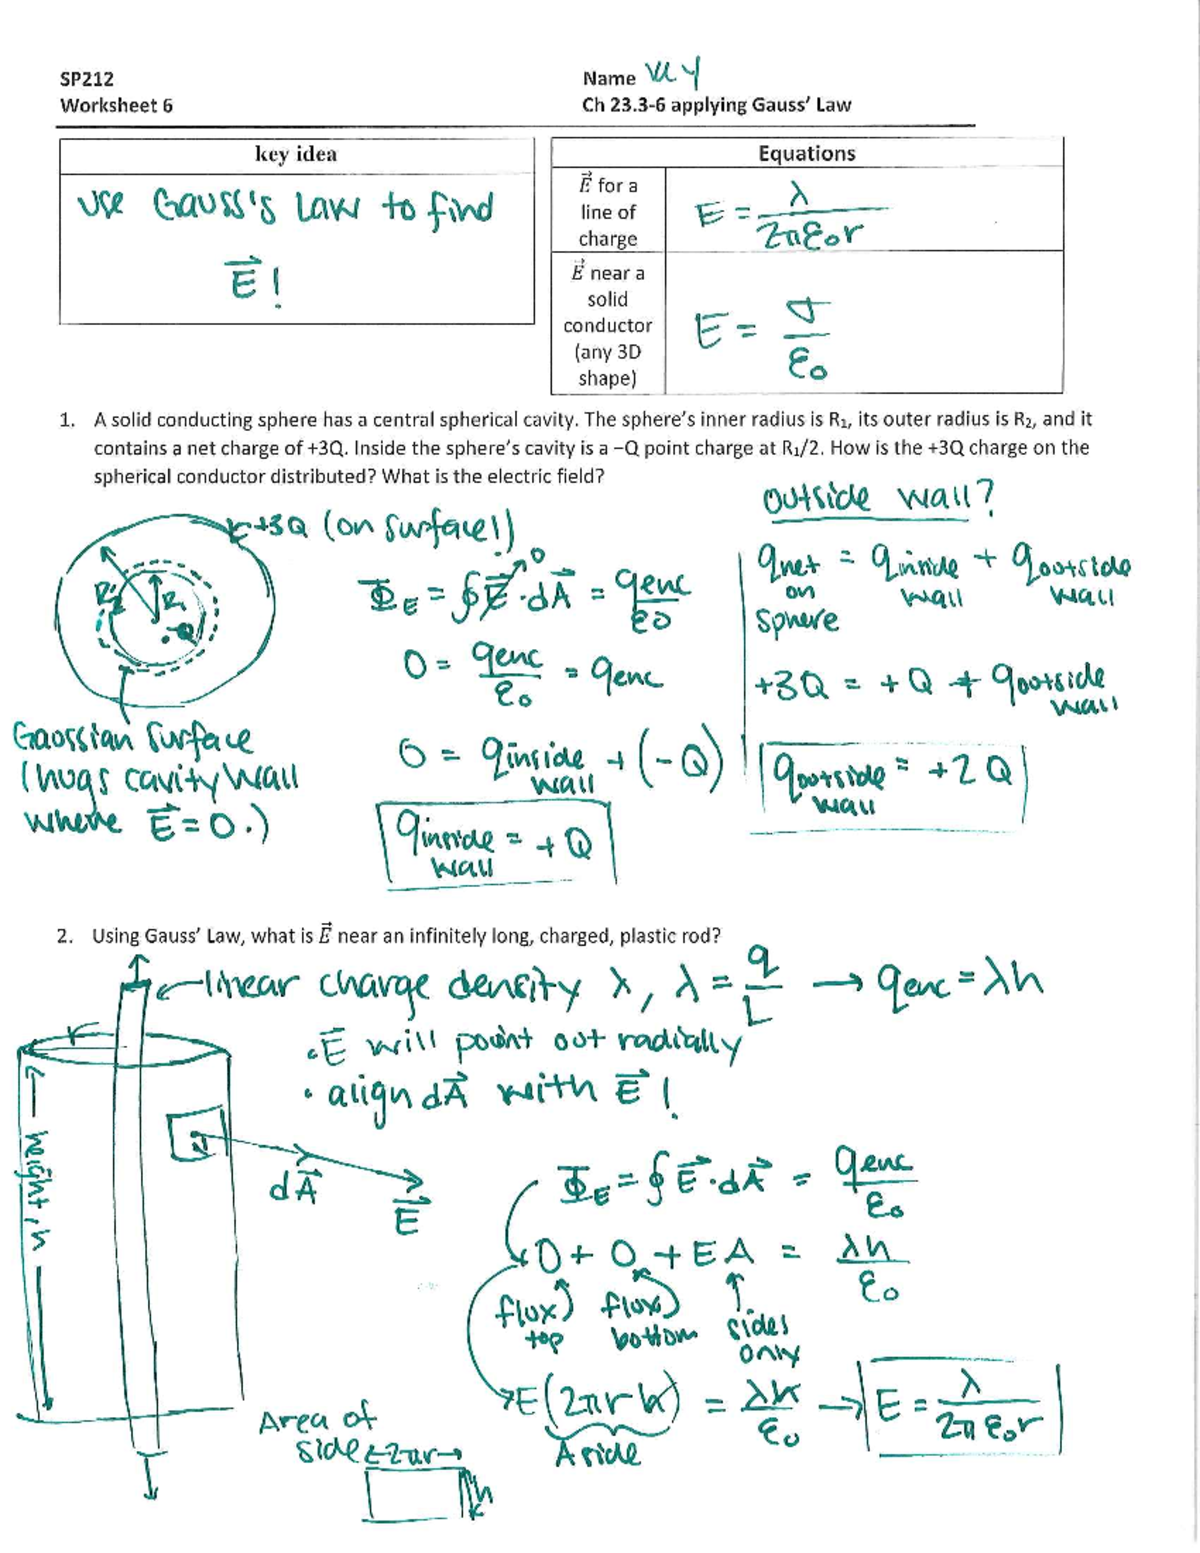 SP212
Name
Worksheet 6
Ch 23.3-6 applying Gauss' Law
key idea
use Gauss's Law to find
E⃗ !
Equations
E⃗ for a
line of
charge
E = λ / 2πε₀r
E⃗ near a
solid
conductor
(any 3D
shape)
E = σ / ε₀
1. A solid conducting sphere has a central spherical cavity. The sphere's inner radius is R₁, its outer radius is R₂, and it
contains a net charge of +3Q. Inside the sphere's cavity is a –Q point charge at R₁/2. How is the +3Q charge on the
spherical conductor distributed? What is the electric field?
+3Q (on surface!)
R₂
R₁
-Q
Gaussian surface
(hugs cavity wall
where E⃗ = 0.)
Φ_E = ∮E⃗·dA⃗ = qenc / ε₀
0
0 = qenc / ε₀ = qenc
0 = qinside wall + (-Q)
qinside wall = +Q
outside wall?
qnet on sphere = qinside wall + qoutside wall
+3Q = +Q + qoutside wall
qoutside wall = +2Q
2. Using Gauss' Law, what is E⃗ near an infinitely long, charged, plastic rod?
linear charge density λ, λ = q / L → qenc = λh
• E⃗ will point out radially
• align dA⃗ with E⃗ !
r
height, h
dA⃗
E⃗
Φ_E = ∮E⃗·dA⃗ = qenc / ε₀
0 + 0 + EA = λh / ε₀
flux top
flux bottom
sides only
E(2πrh) = λh / ε₀ → E = λ / 2πε₀r
A side
Area of
side
2πr
h